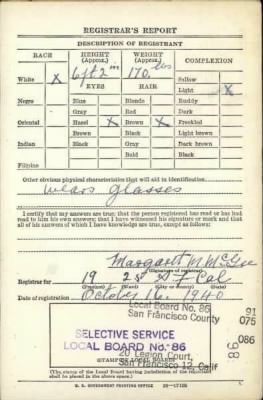 REGISTRAR'S REPORT
DESCRIPTION OF REGISTRANT
RACE HEIGHT (Approx.) WEIGHT (Approx.) COMPLEXION
White X 6 ft 2 in 170 lbs Sallow
EYES HAIR Light X
Negro Blue Blonde Ruddy
Gray Red Dark
Oriental Hazel X Brown X Freckled
Brown Black Light brown
Indian Black Gray Dark brown
Bald Black
Filipino
Other obvious physical characteristics that will aid in identification
wears glasses
I certify that my answers are true; that the person registered has read or has had
read to him his own answers; that I have witnessed his signature or mark and that
all of his answers of which I have knowledge are true, except as follows:
Margaret M. McGee
(Signature of registrar)
Registrar for 19 25 S F Cal
(Precinct) (Ward) (City or County) (State)
Date of registration October 16, 1940
Local Board No. 86
San Francisco County
91
075
086
86
SELECTIVE SERVICE
LOCAL BOARD No. 86
20 Legion Court,
San Francisco 12, Calif
(STAMP OF LOCAL BOARD)
(The stamp of the Local Board having jurisdiction of the registrant
shall be placed in the above space.)
U. S. GOVERNMENT PRINTING OFFICE 16—17105